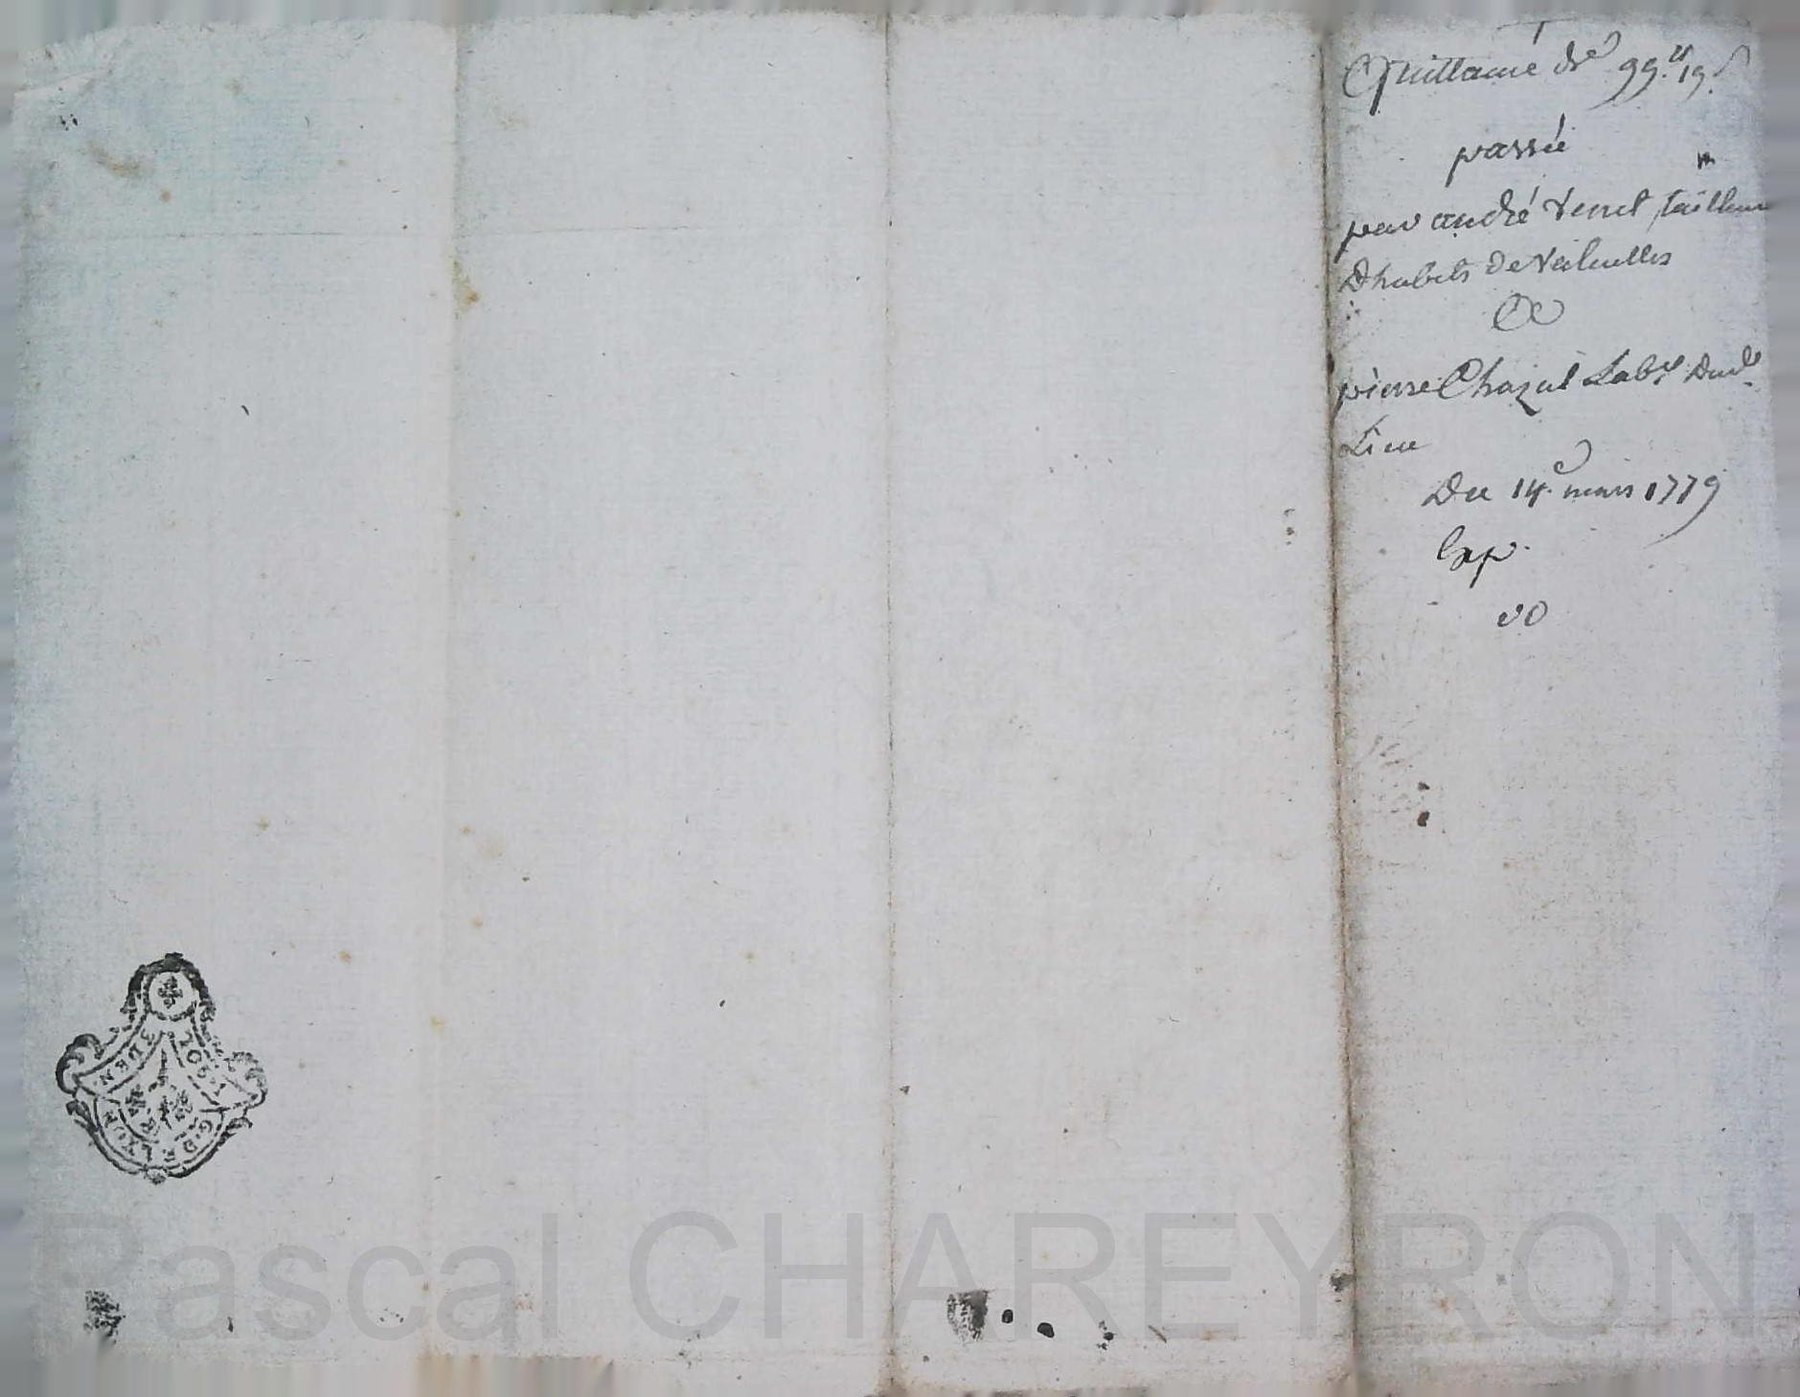 Quittance de 99.ˡᵗ 19.ˢ
passée
par andré Venet tailleur
Dhabits de
Et
pierre Chazal Labʳ Dud.
Lieu
Du 14.ᵉ mars 1779
Exp.
G.DE LYON
Pascal CHAREYRON